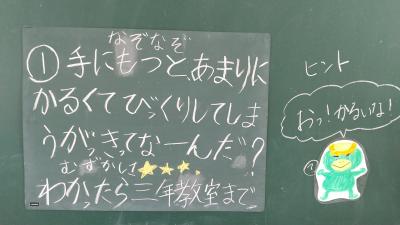 なぞなぞ
①手にもつと、あまりに
かるくてびっくりしてしま
うがっきってなーんだ?
むずかしさ★★★
わかったら三年教室まで
ヒント
おっ!かるいな!